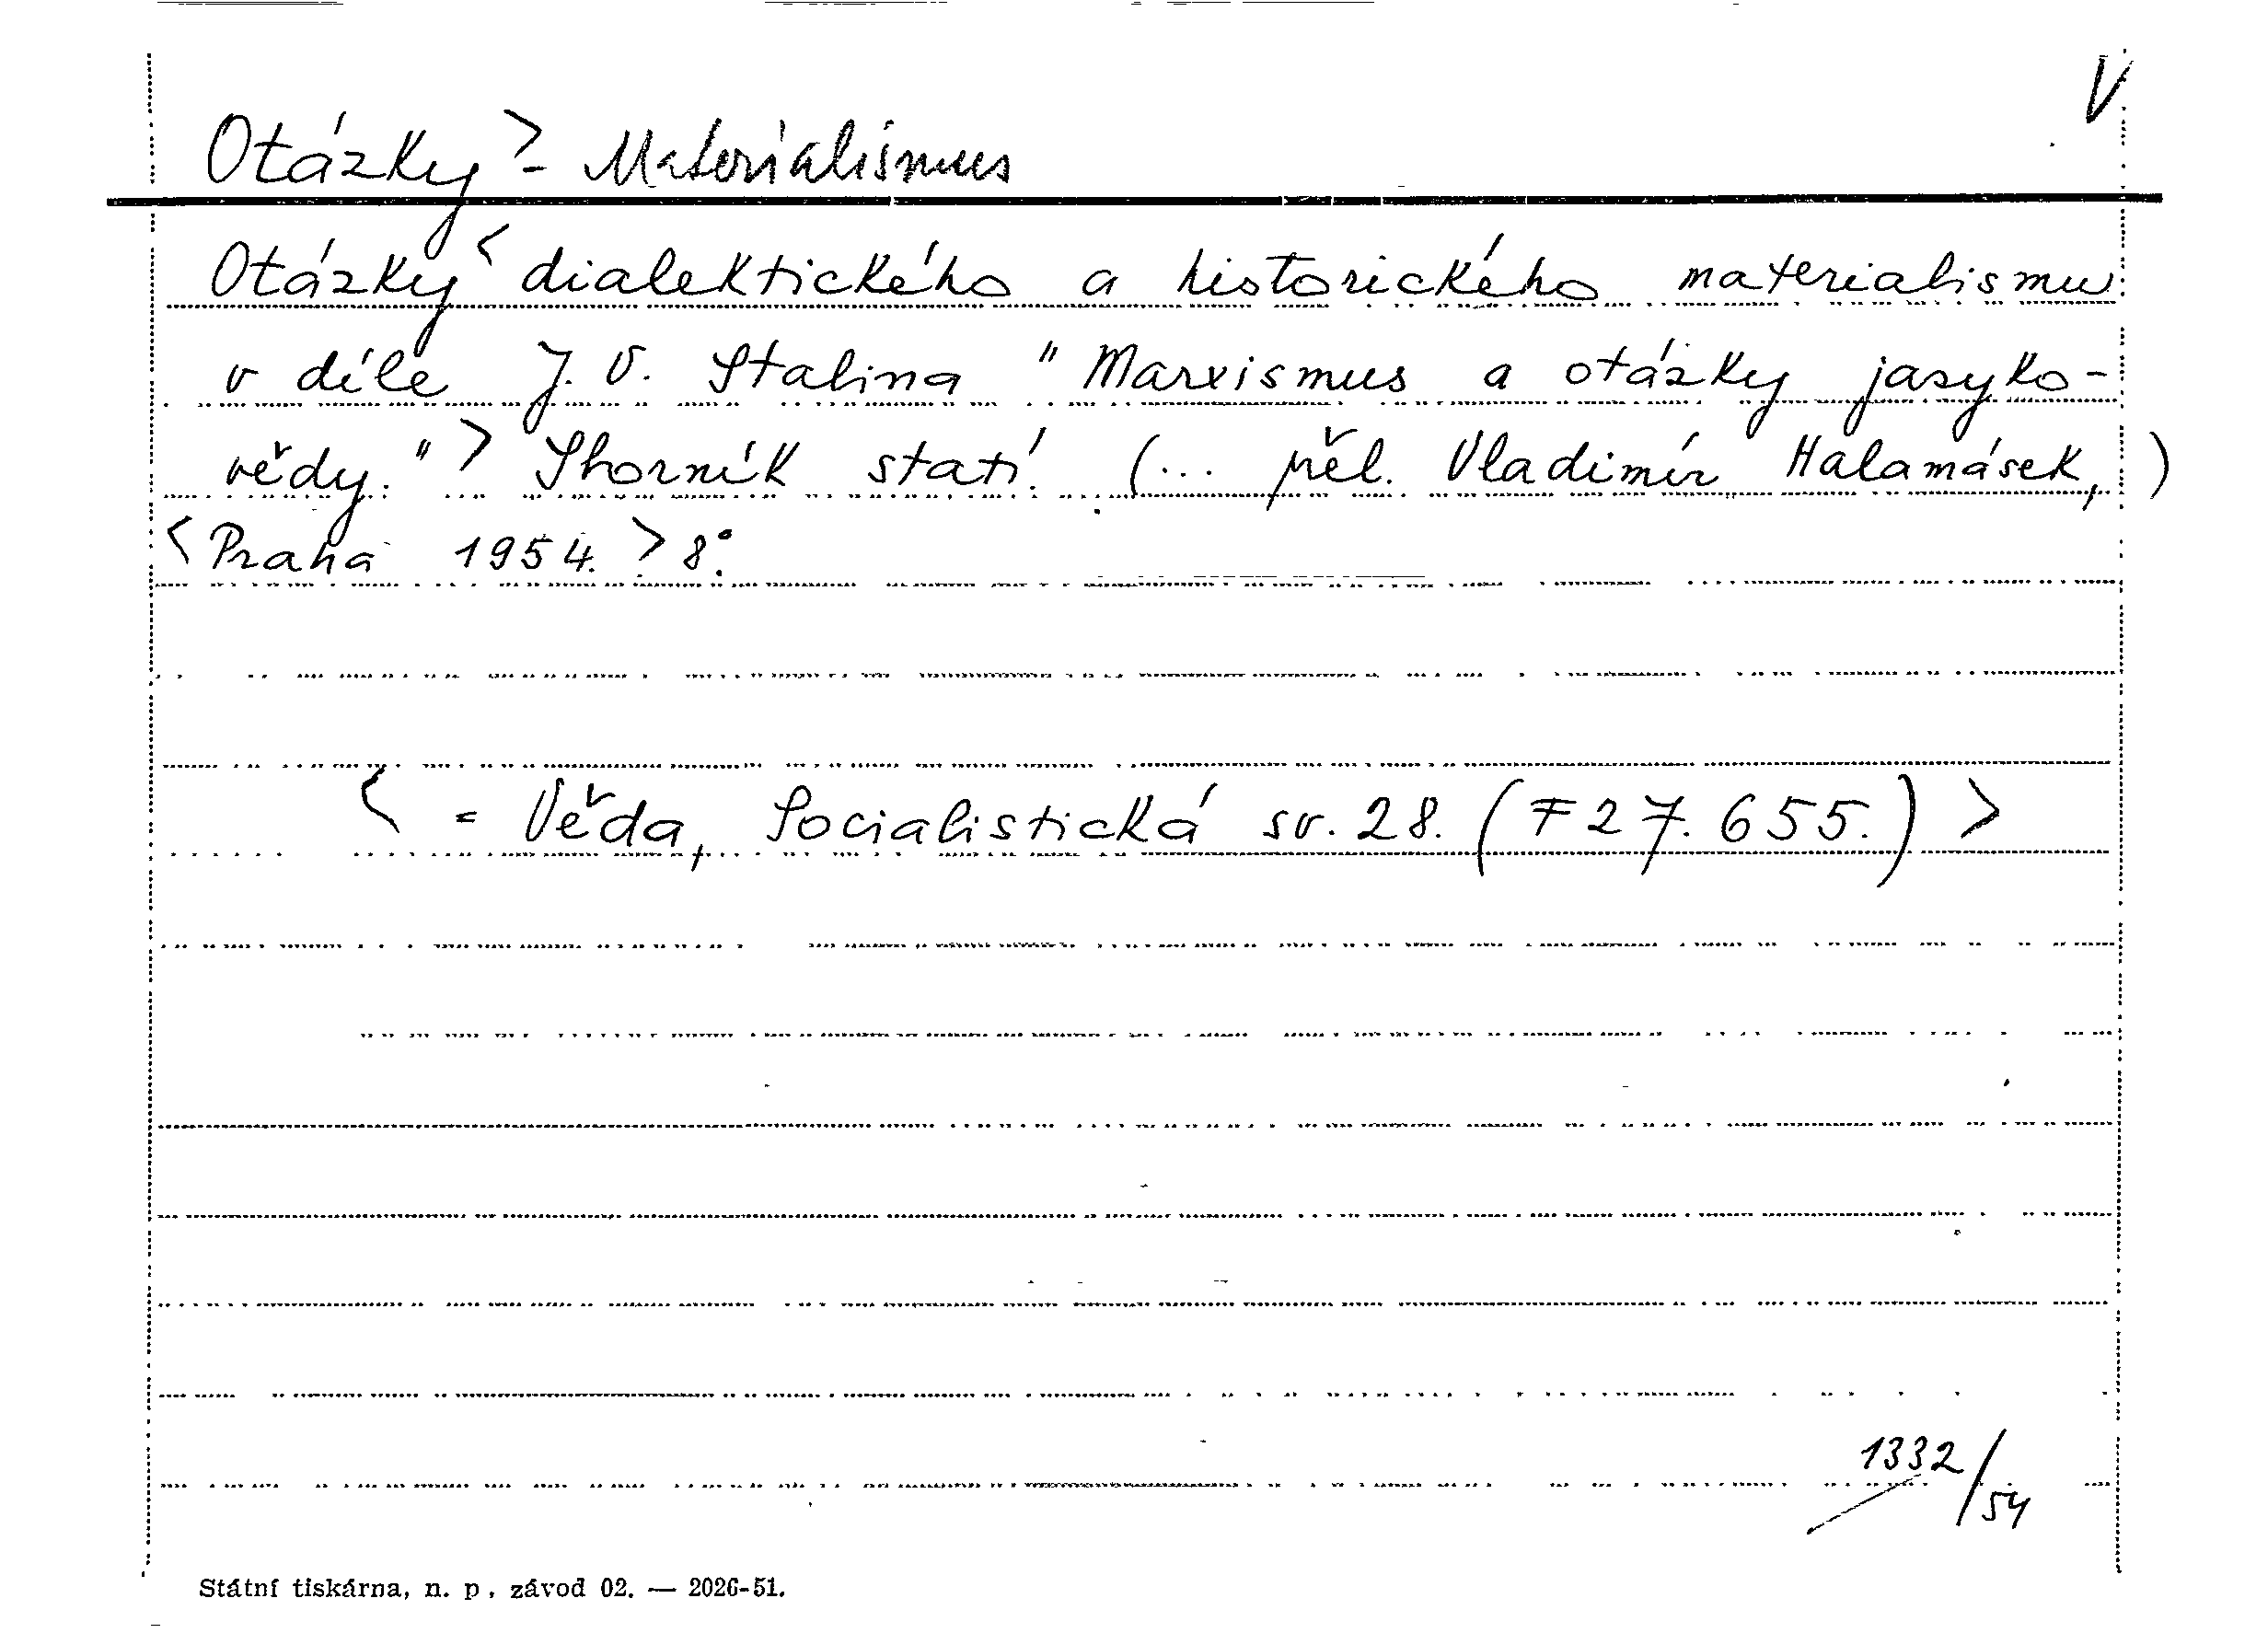 V
Otázky > - Materialismus
Otázky < dialektického a historického materialismu
v díle J. V. Stalina "Marxismus a otázky jazyko-
vědy." > Sborník statí. (... přel. Vladimír Halamásek,)
< Praha 1954. > 8°.
< = Věda, Socialistická sv. 28. (F 27.655.) >
1332/54
Státní tiskárna, n. p., závod 02. — 2026-51.